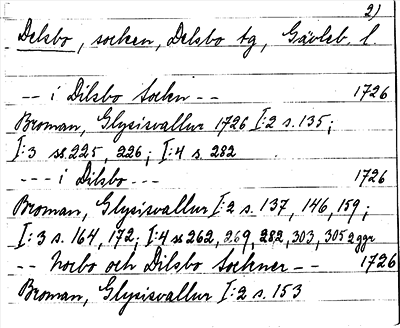 2)
Delsbo, socken, Delsbo tg, Gävleb. l.
-- i Dilsbo Sockn -- 1726
Broman, Glysisvallur 1726 I:2 s. 135;
I:3 ss. 225, 226; I:4 s. 282
--- i Dilsbo --- 1726
Broman, Glysisvallur I:2 s. 137, 146, 159;
I:3 s. 164, 172; I:4 ss 262, 269, 282, 303, 305 2 ggr
-- Norbo och Dilsbo Sockner -- 1726
Broman, Glysisvallur I:2 s. 153